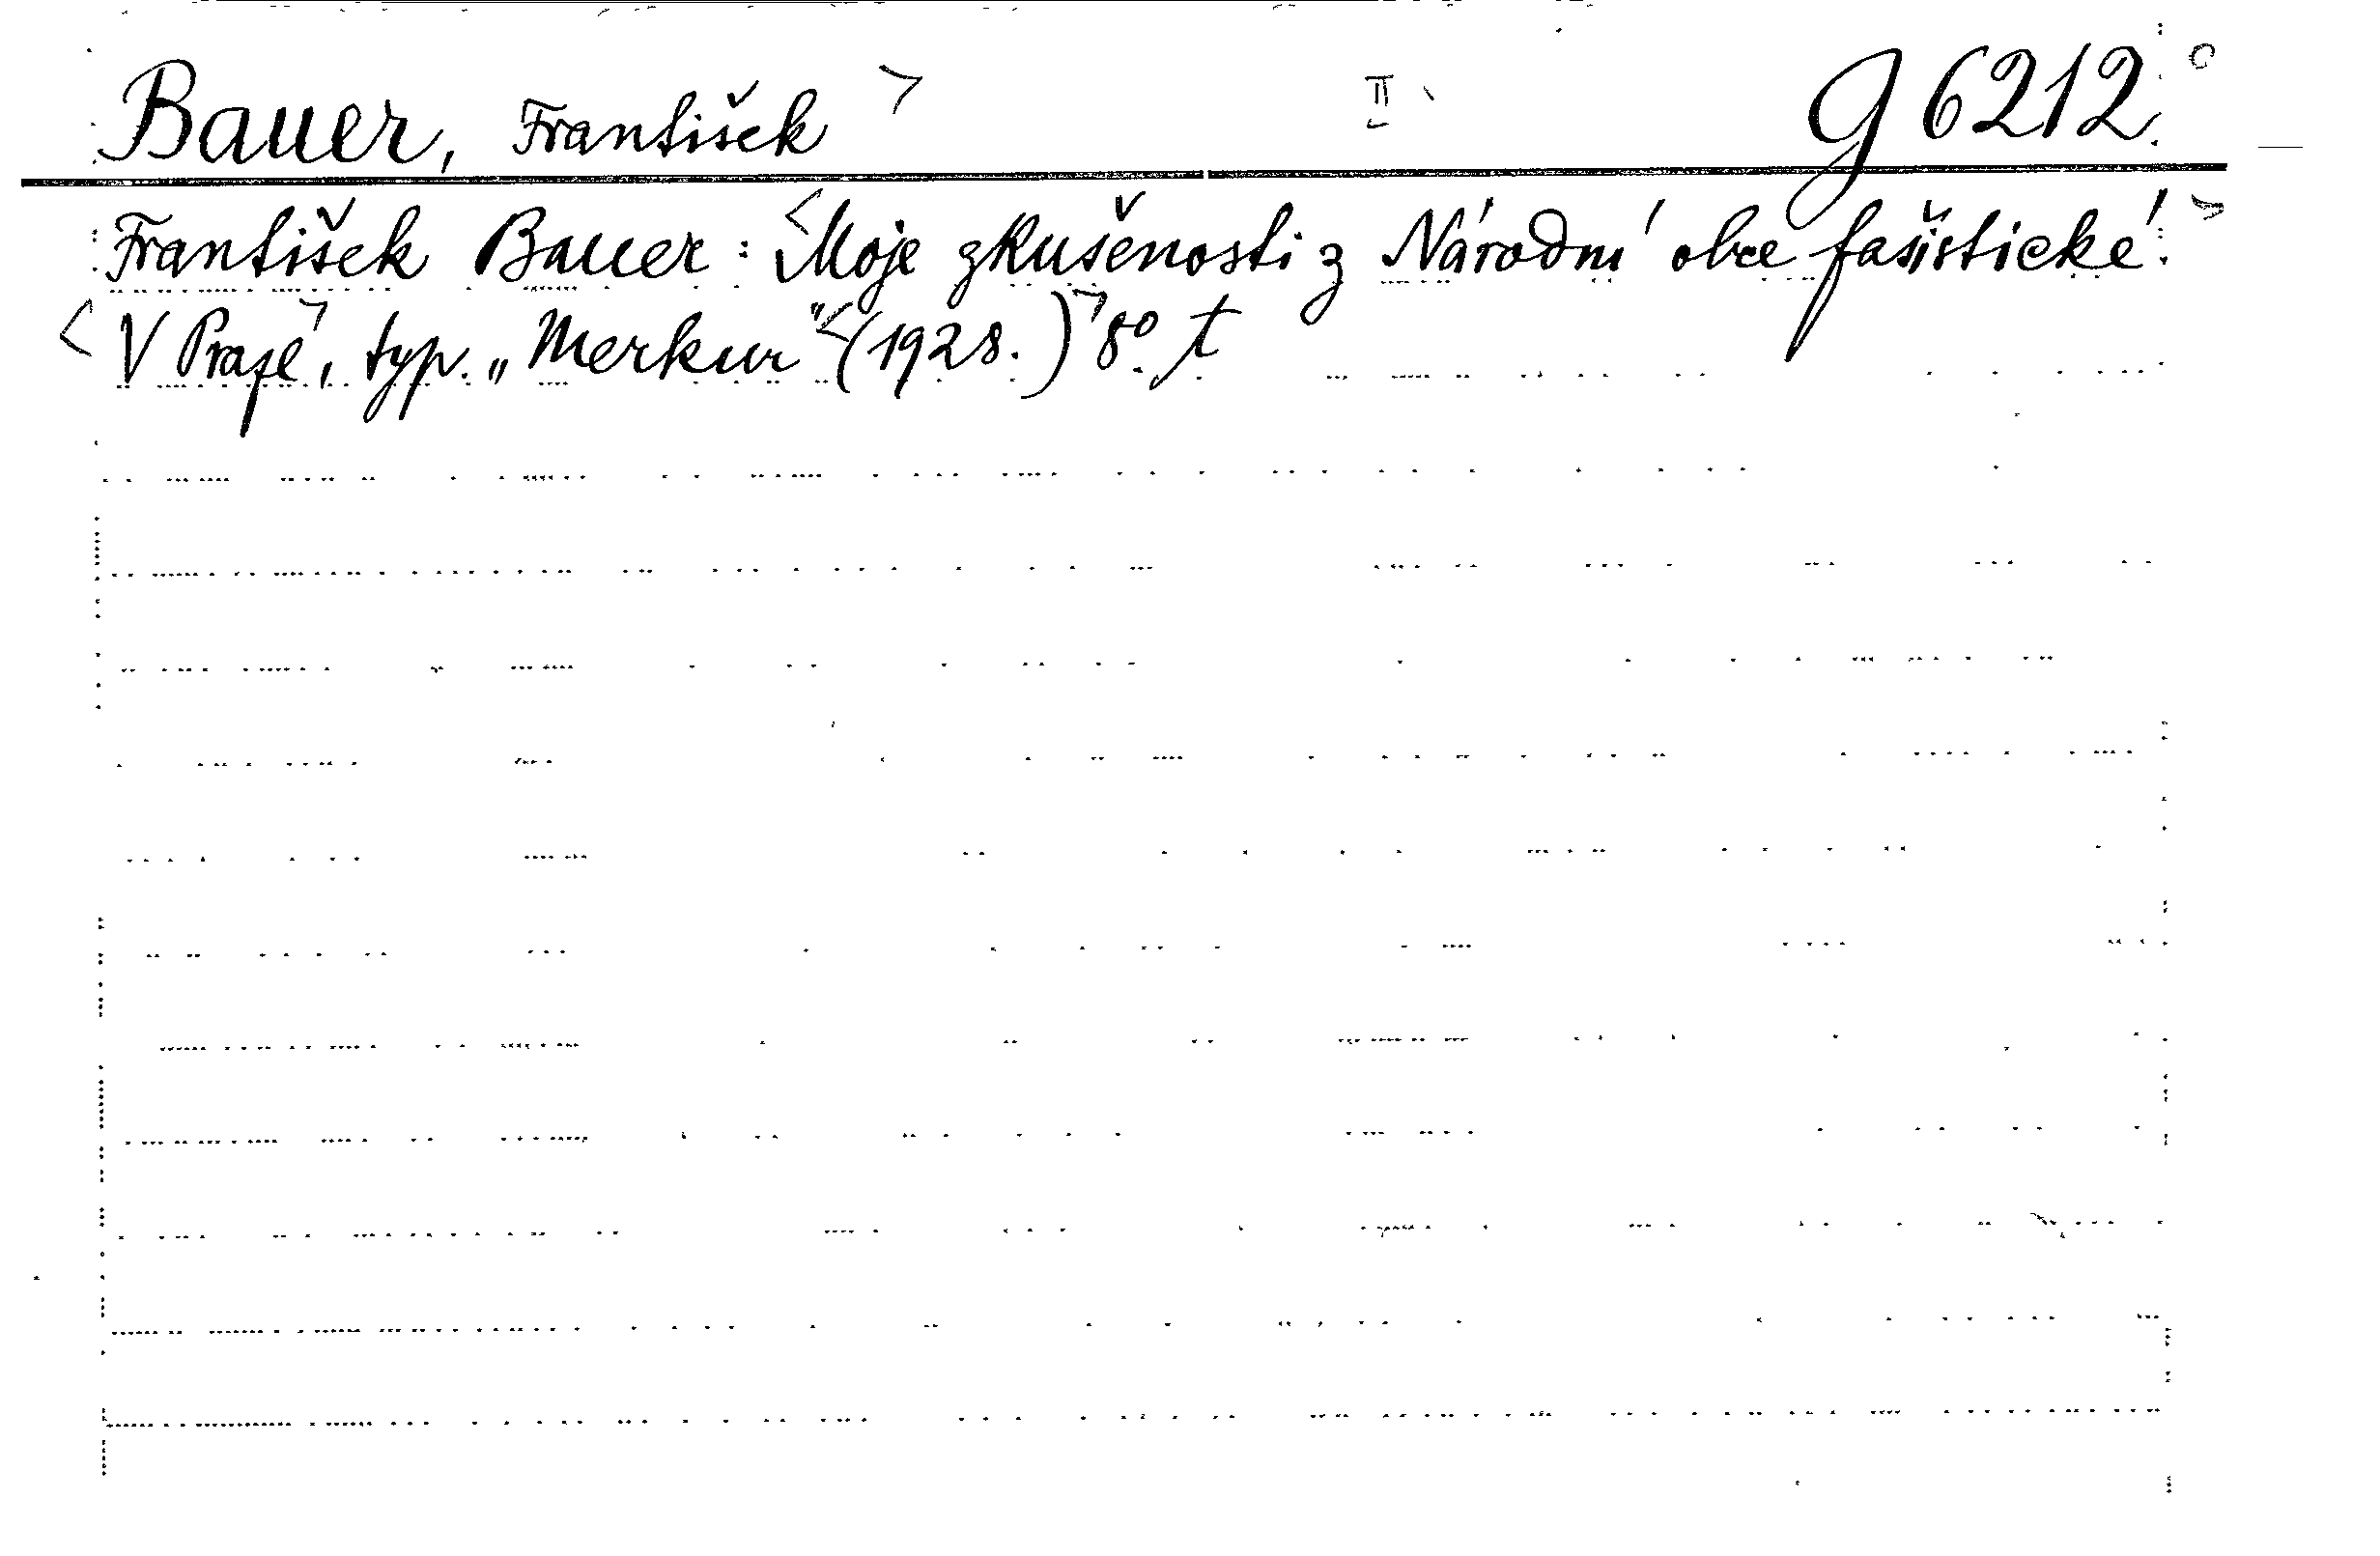 Bauer, František > II G 6212. c
František Bauer: <Moje zkušenosti z Národní obce fašistické.>
<V Praze>, typ. „Merkur" <(1928.)> 8º. t